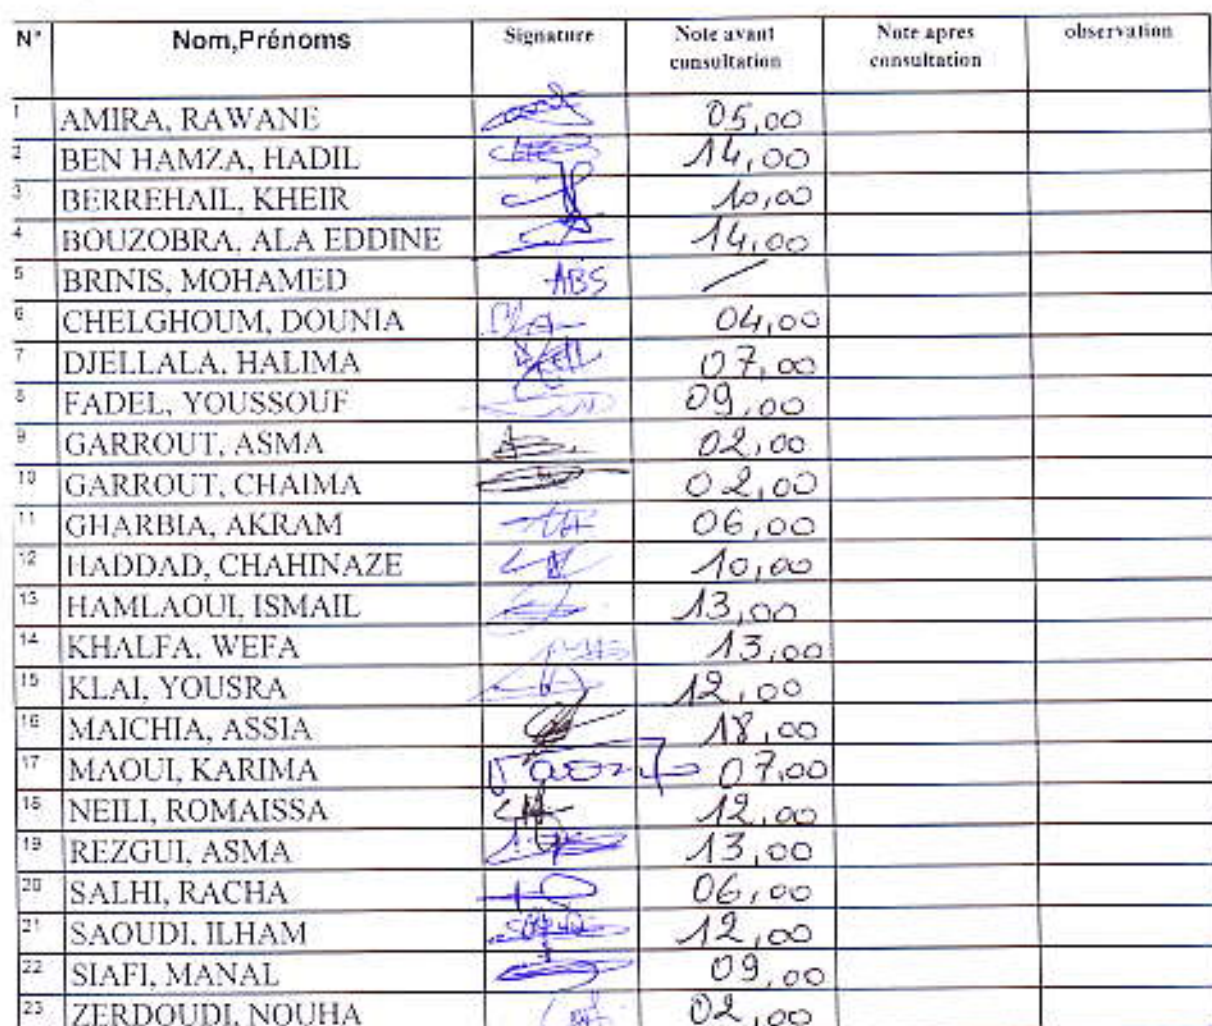 N° Nom,Prénoms Signature Note avant consultation Note apres consultation observation
1 AMIRA, RAWANE 05,00
2 BEN HAMZA, HADIL 14,00
3 BERREHAIL, KHEIR 10,00
4 BOUZOBRA, ALA EDDINE 14,00
5 BRINIS, MOHAMED ABS /
6 CHELGHOUM, DOUNIA 04,00
7 DJELLALA, HALIMA 07,00
8 FADEL, YOUSSOUF 09,00
9 GARROUT, ASMA 02,00
10 GARROUT, CHAIMA 02,00
11 GHARBIA, AKRAM 06,00
12 HADDAD, CHAHINAZE 10,00
13 HAMLAOUI, ISMAIL 13,00
14 KHALFA, WEFA 13,00
15 KLAI, YOUSRA 12,00
16 MAICHIA, ASSIA 18,00
17 MAOUI, KARIMA 07,00
18 NEILI, ROMAISSA 12,00
19 REZGUI, ASMA 13,00
20 SALHI, RACHA 06,00
21 SAOUDI, ILHAM 12,00
22 SIAFI, MANAL 09,00
23 ZERDOUDI, NOUHA 02,00